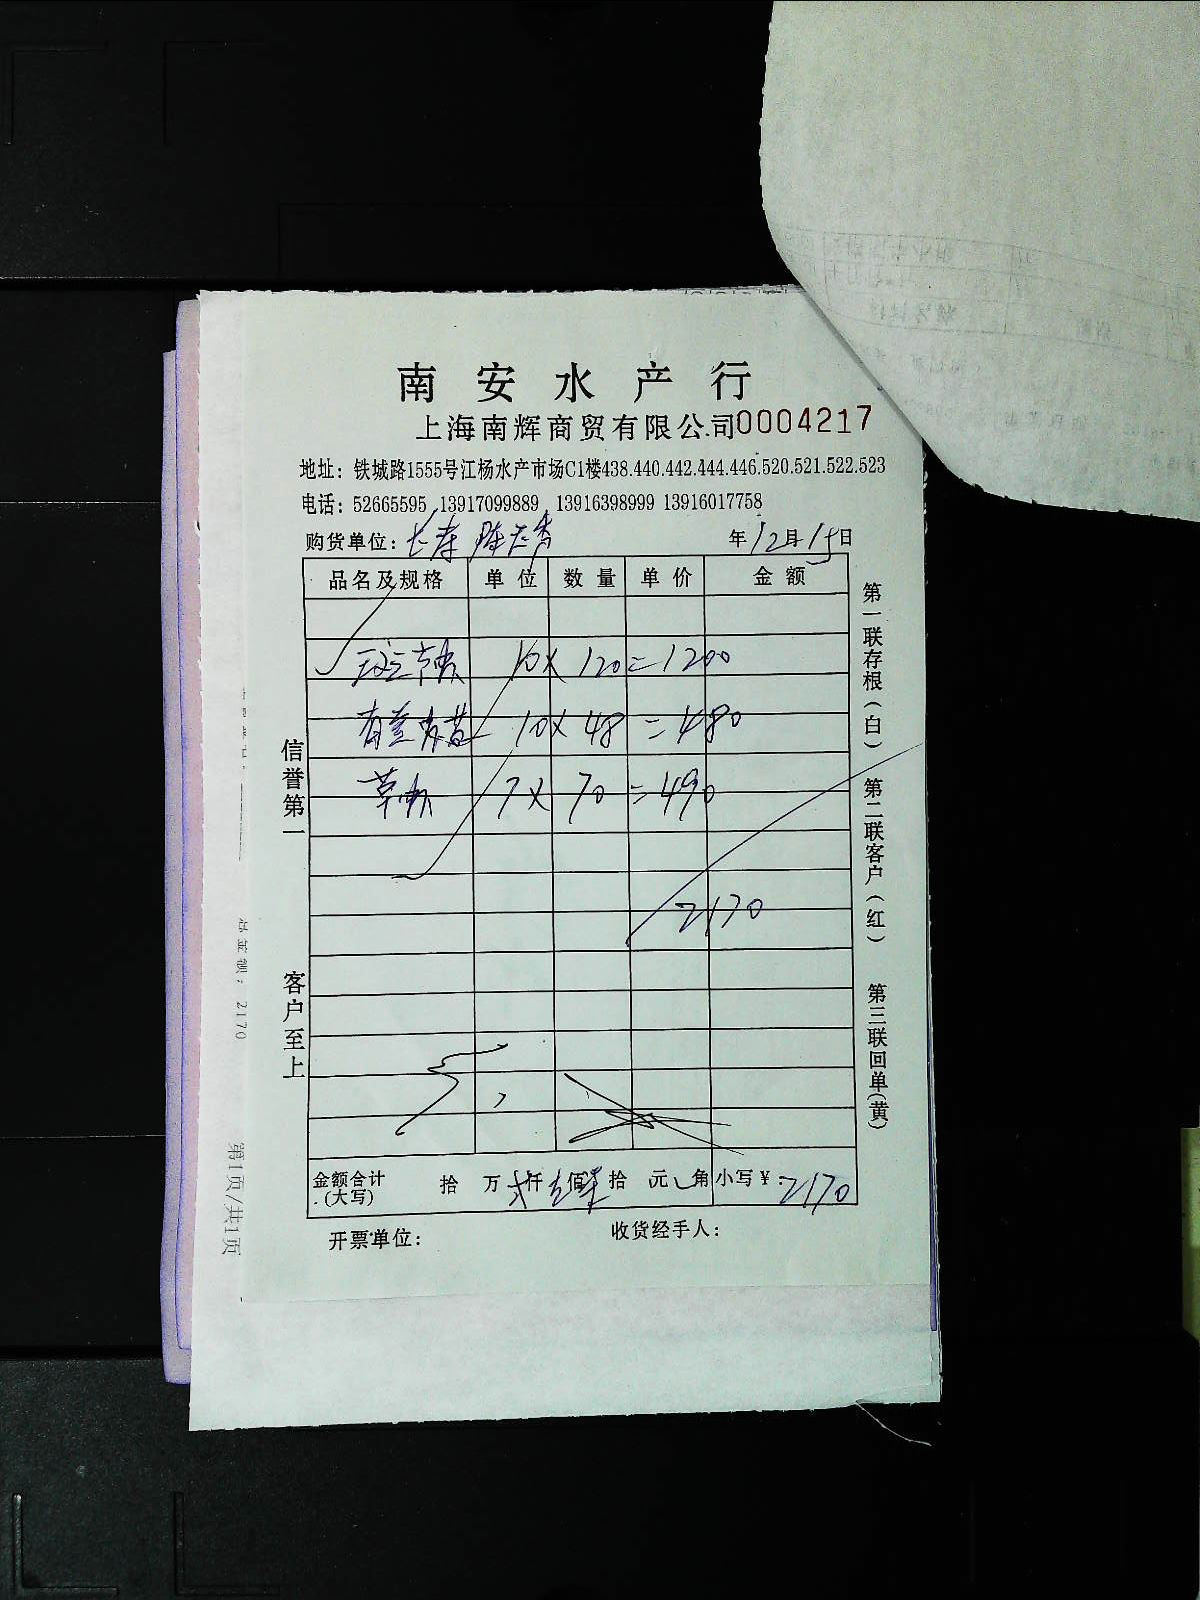 南安水产行
上海南辉商贸有限公司0004217
地址：铁城路1555号江杨水产市场C1楼438.440.442.444.446.520.521.522.523
电话：52665595 13917099889 13916398999 13916017758
购货单位：长寿
年12月15日
品名及规格 单位 数量 单价 金额
斑节虾 10× 120=1200
10× 48=480
草虾 7× 70=490
2170
金额合计(大写) 拾 万 仟 佰 拾 元 角 小写¥：2170
开票单位： 收货经手人：
信誉第一
客户至上
第一联存根(白)
第二联客户(红)
第三联回单(黄)
总金额：2170
第1页/共1页